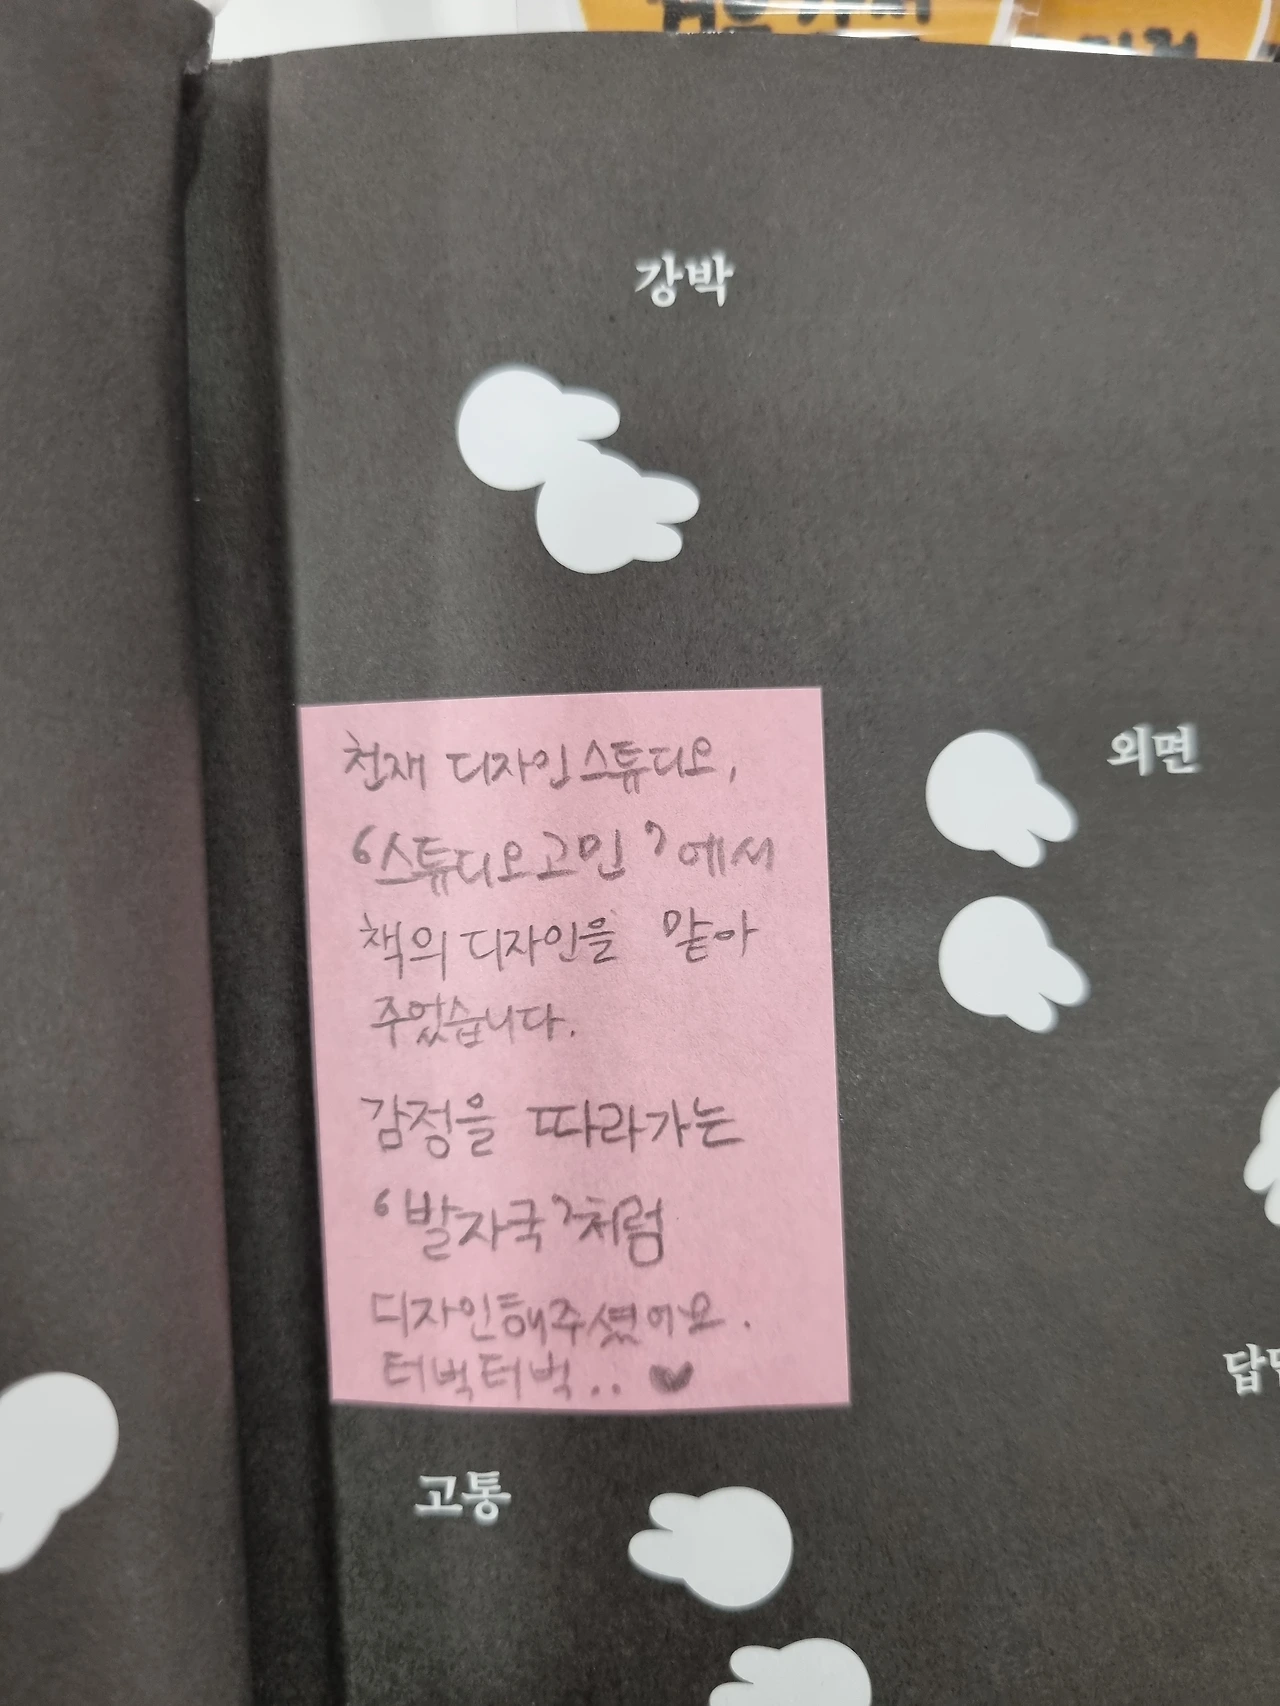 강박
외면
천재 디자인스튜디오,
‘스튜디오고민’에서
책의 디자인을 맡아
주었습니다.
감정을 따라가는
‘발자국’처럼
디자인해주셨어요.
터벅터벅.. ♥
고통